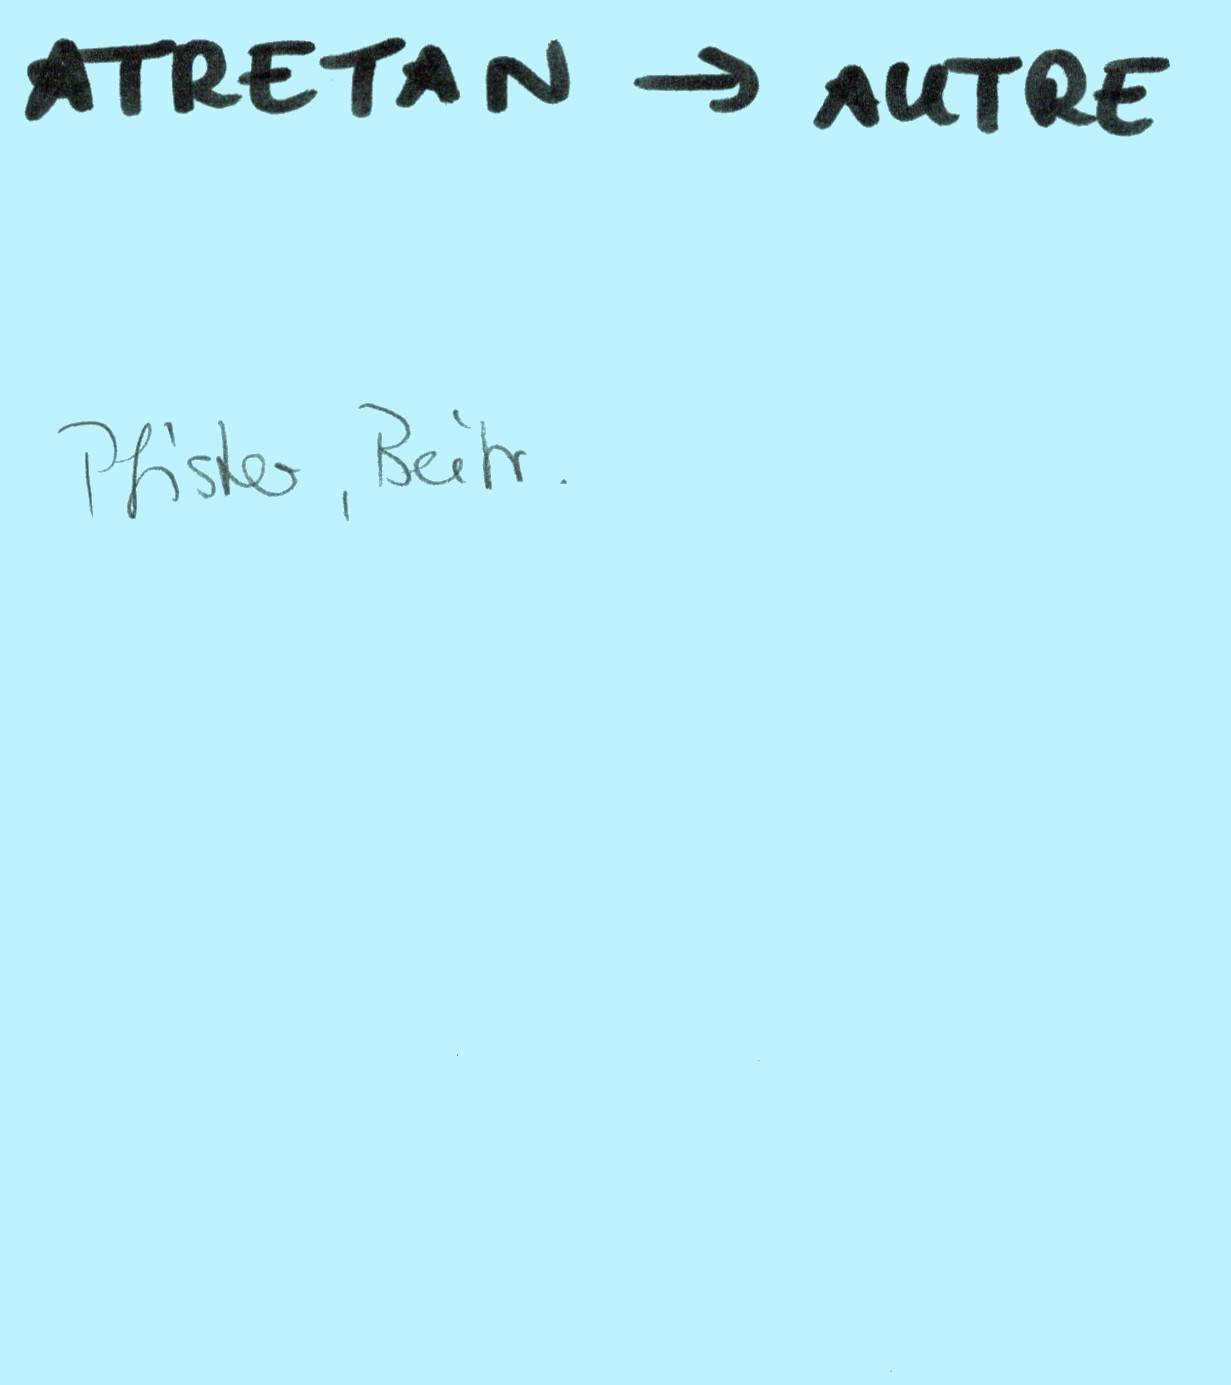 ATRETAN → AUTRE
Pfister, Beitr.